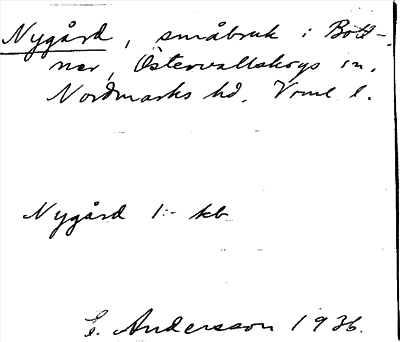 Nygård, småbruk i Bott-
nar, Östervallskogs sn,
Nordmarks hd, Vrml l.
Nygård 1:- kb
E. Andersson 1936.